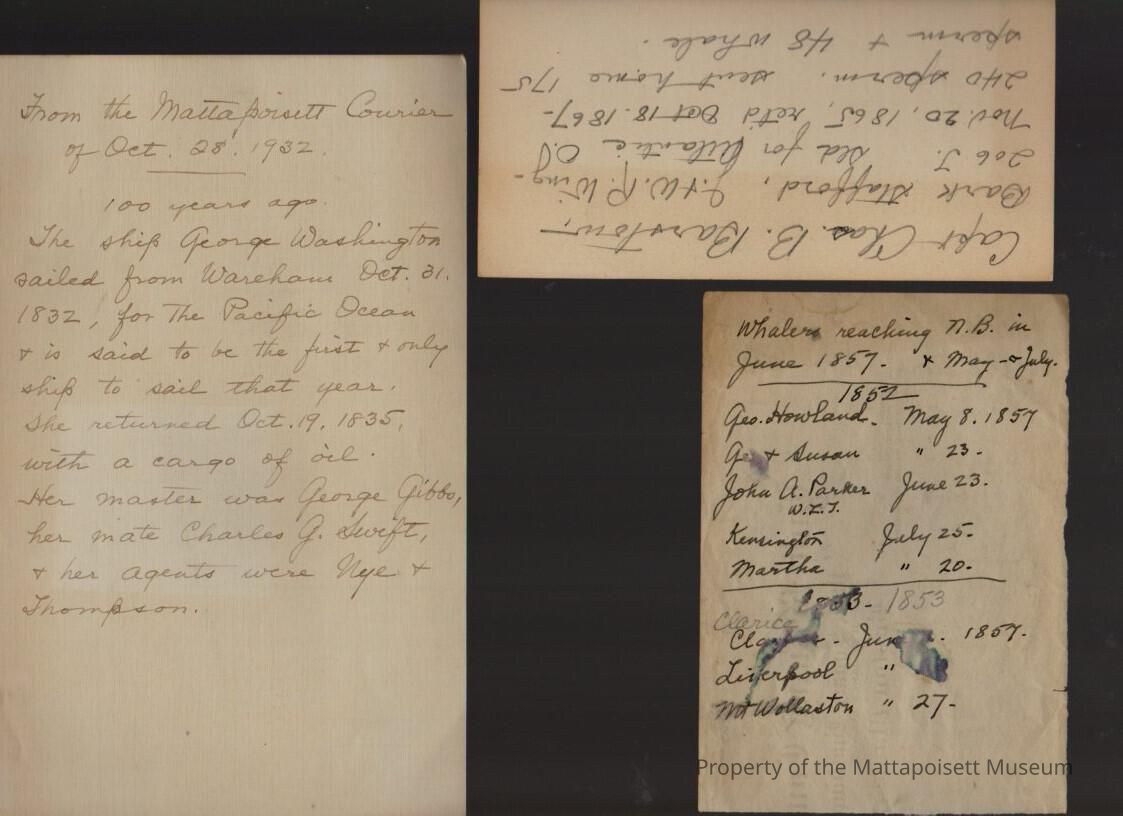 From the Mattapoisett Courier
of Oct. 28. 1932.
100 years ago.
The ship George Washington
sailed from Wareham Oct. 31.
1832, for the Pacific Ocean
& is said to be the first & only
ship to sail that year.
She returned Oct. 19, 1835,
with a cargo of oil.
Her master was George Gibbs,
her mate Charles G. Swift,
& her agents were Nye &
Thompson.
Capt Chas. B. Barstow,
Bark Stafford, J. & W. R. Wing-
206 T. Sld for Atlantic O.
Nov. 20, 1865, ret'd Oct 18. 1867-
240 sperm. sent home 175
sperm + 48 whale.
Whalers reaching N.B. in
June 1857. & May - & July.
1852
Geo. Howland. May 8. 1857
Geo & Susan " 23-
John A. Parker June 23.
W.L.T.
Kensington July 25-
Martha " 20-
1853- 1853
Clarice
June 1857.
Liverpool "
Mt Wollaston " 27-
Property of the Mattapoisett Museum